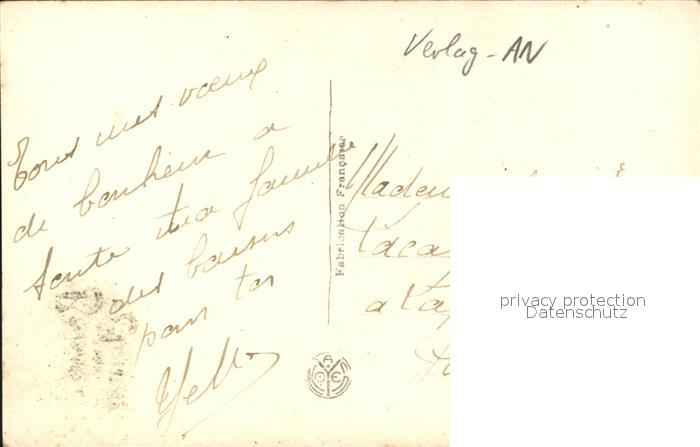 Verlag - AN
Tous mes vœux
de bonheur a
toute ta famille
des baisers
pour toi
Fabrication Française
Madem
Laca
a La
privacy protection
Datenschutz